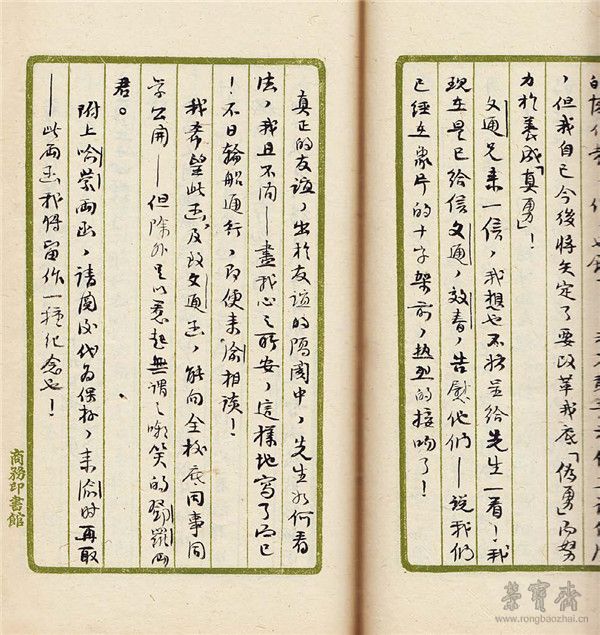 ,但我自己今後將矢定了要改革我底「偽勇」而努
力於養成「真勇」!
文通兄来一信,我想也不妨呈给先生一看!我
現在是已给信文通,效春,告慰他們——說我們
已經在象片的十字架前,热烈的接吻了!
真正的友谊,出於友谊的隔閡中,先生如何看
法,我且不问——盡我心之所安,這樣地寫了而已
!不日輪船通行,即便来渝相談!
我希望此函,及致文通函,能向全校底同事同
学公開——但除外足以惹起無謂之嘲笑的鄧羅兩
君。
附上哈蒙兩函,請閱後代为保存,来渝时再取
——此兩函我將留作一種纪念也!
商務印書館
榮寶齋
www.rongbaozhai.cn